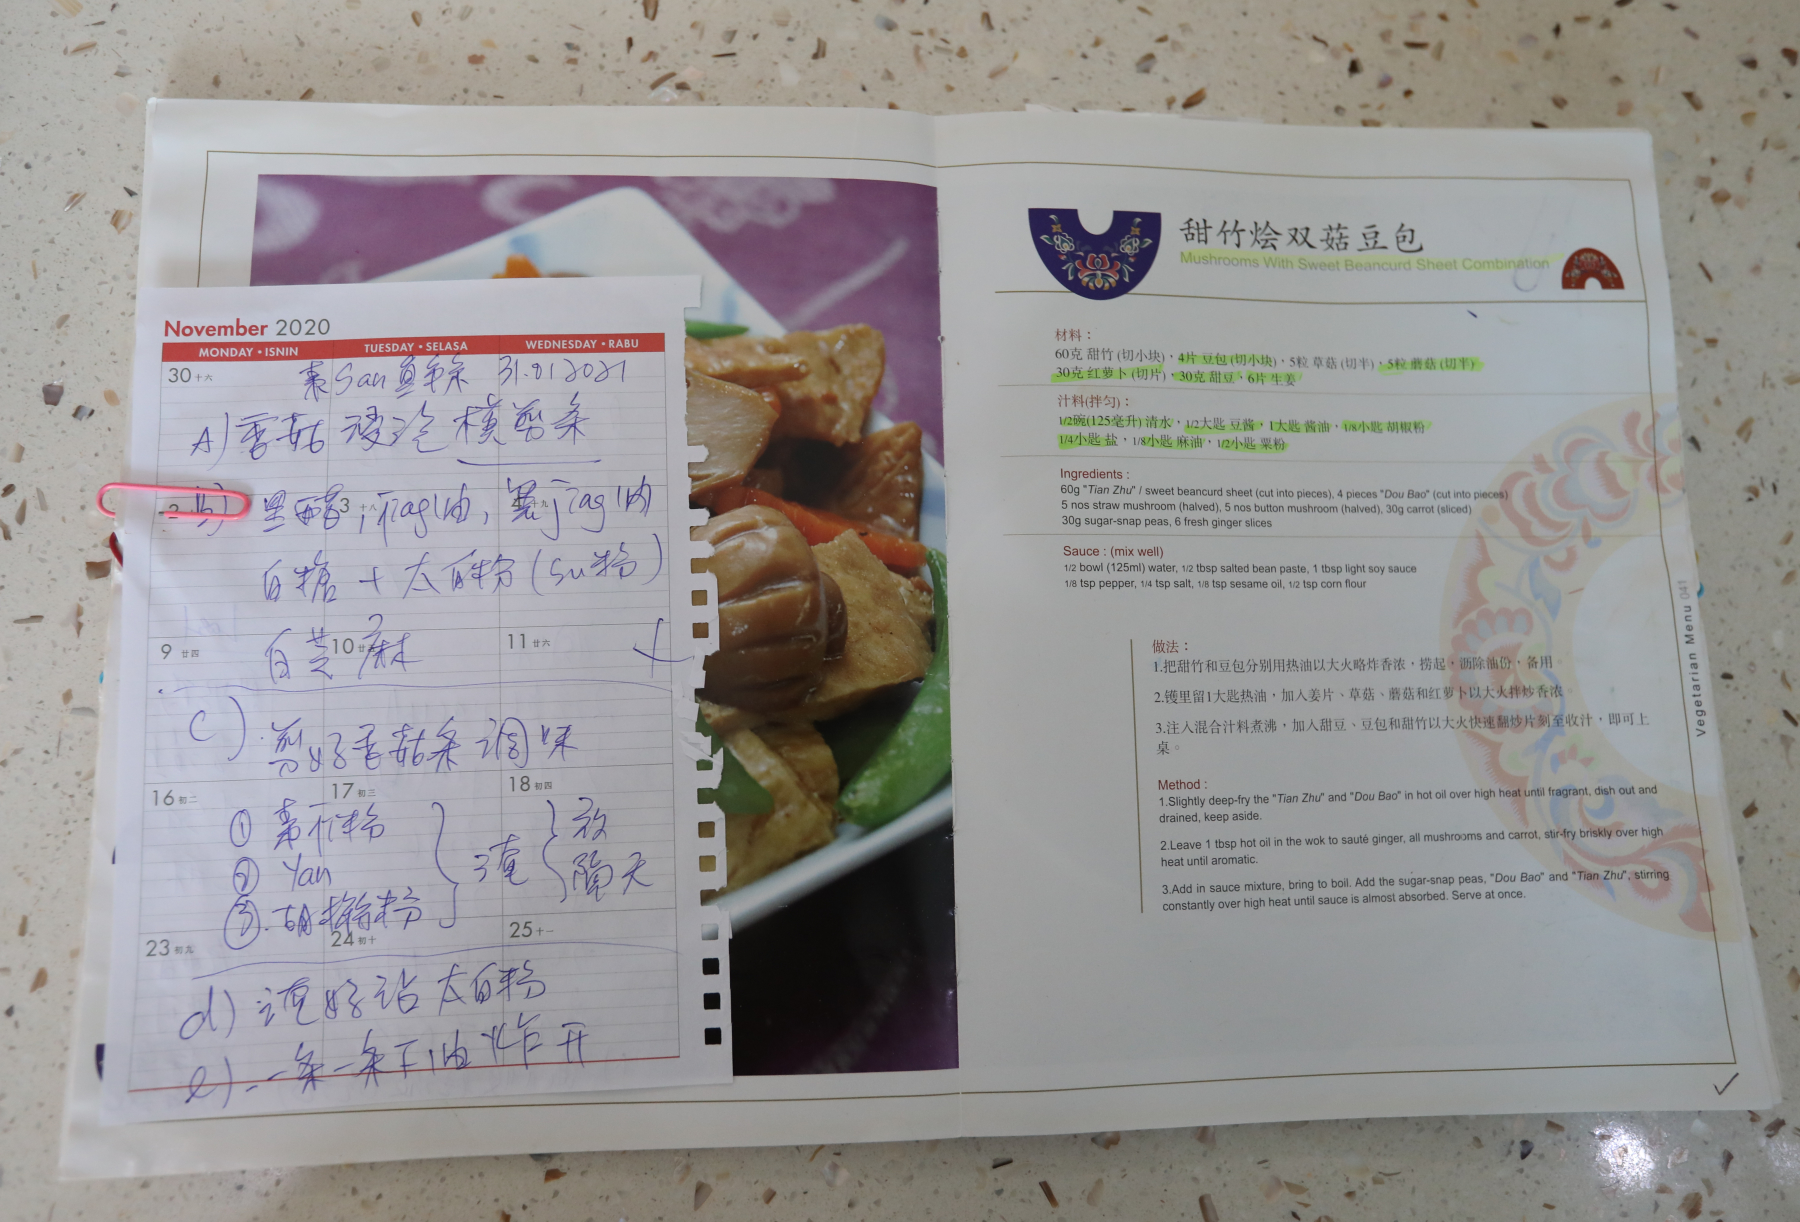 November 2020
MONDAY • ISNIN
TUESDAY • SELASA
WEDNESDAY • RABU
30 十六
素San 31.01.2021
A) 香菇浸泡 横剪条
2
3 十八
b) 黑
白糖 + 太白粉(Su粉)
白芝麻
9 廿四
10
11 廿六
C) 剪好香菇条调味
16 初二
17 初三
18 初四
① 粉
② Yan
③ 胡椒粉
放
隔天
23 初九
24 初十
25 十一
d) 好沾太白粉
e) 一条一条下油炸开
甜竹烩双菇豆包
Mushrooms With Sweet Beancurd Sheet Combination
材料：
60克 甜竹 (切小块)，4片 豆包 (切小块)，5粒 草菇 (切半)，5粒 蘑菇 (切半)
30克 红萝卜 (切片)，30克 甜豆，6片 生姜
汁料(拌匀)：
1/2碗(125毫升) 清水，1/2大匙 豆酱，1大匙 酱油，1/8小匙 胡椒粉
1/4小匙 盐，1/8小匙 麻油，1/2小匙 粟粉
Ingredients :
60g "Tian Zhu" / sweet beancurd sheet (cut into pieces), 4 pieces "Dou Bao" (cut into pieces)
5 nos straw mushroom (halved), 5 nos button mushroom (halved), 30g carrot (sliced)
30g sugar-snap peas, 6 fresh ginger slices
Sauce : (mix well)
1/2 bowl (125ml) water, 1/2 tbsp salted bean paste, 1 tbsp light soy sauce
1/8 tsp pepper, 1/4 tsp salt, 1/8 tsp sesame oil, 1/2 tsp corn flour
做法：
1.把甜竹和豆包分别用热油以大火略炸香浓，捞起，沥除油份，备用
2.镬里留1大匙热油，加入姜片、草菇、蘑菇和红萝卜以大火拌炒香浓
3.注入混合汁料煮沸，加入甜豆、豆包和甜竹以大火快速翻炒片刻至收汁，即可上
桌。
Method :
1.Slightly deep-fry the "Tian Zhu" and "Dou Bao" in hot oil over high heat until fragrant, dish out and
drained, keep aside.
2.Leave 1 tbsp hot oil in the wok to sauté ginger, all mushrooms and carrot, stir-fry briskly over high
heat until aromatic.
3.Add in sauce mixture, bring to boil. Add the sugar-snap peas, "Dou Bao" and "Tian Zhu", stirring
constantly over high heat until sauce is almost absorbed. Serve at once.
Vegetarian Menu 041